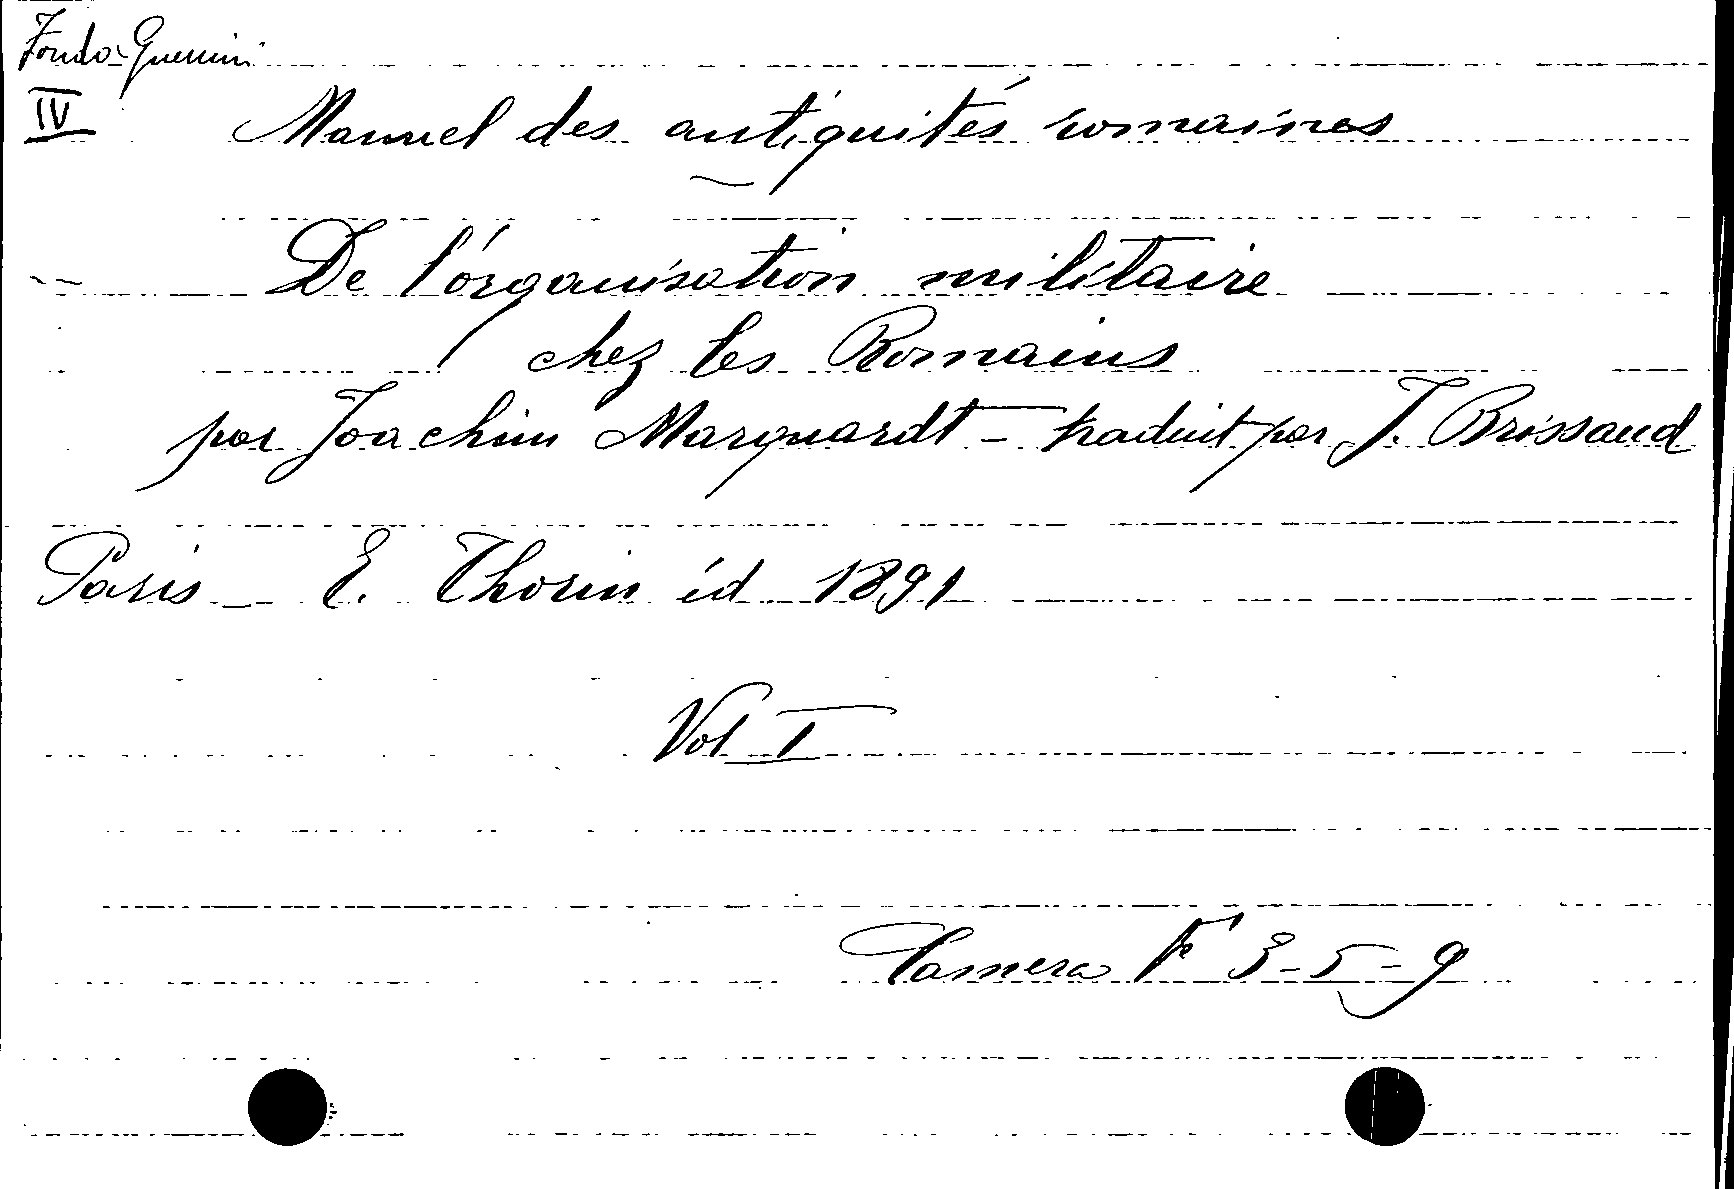 Fondo Guerrini
IV Manuel des antiquités romaines
De l'organisation militaire
chez les Romains
par Joachim Marquardt - traduit par J. Brissaud
Paris - E. Thorin éd 1891
Vol I
Camera F 3-5-9